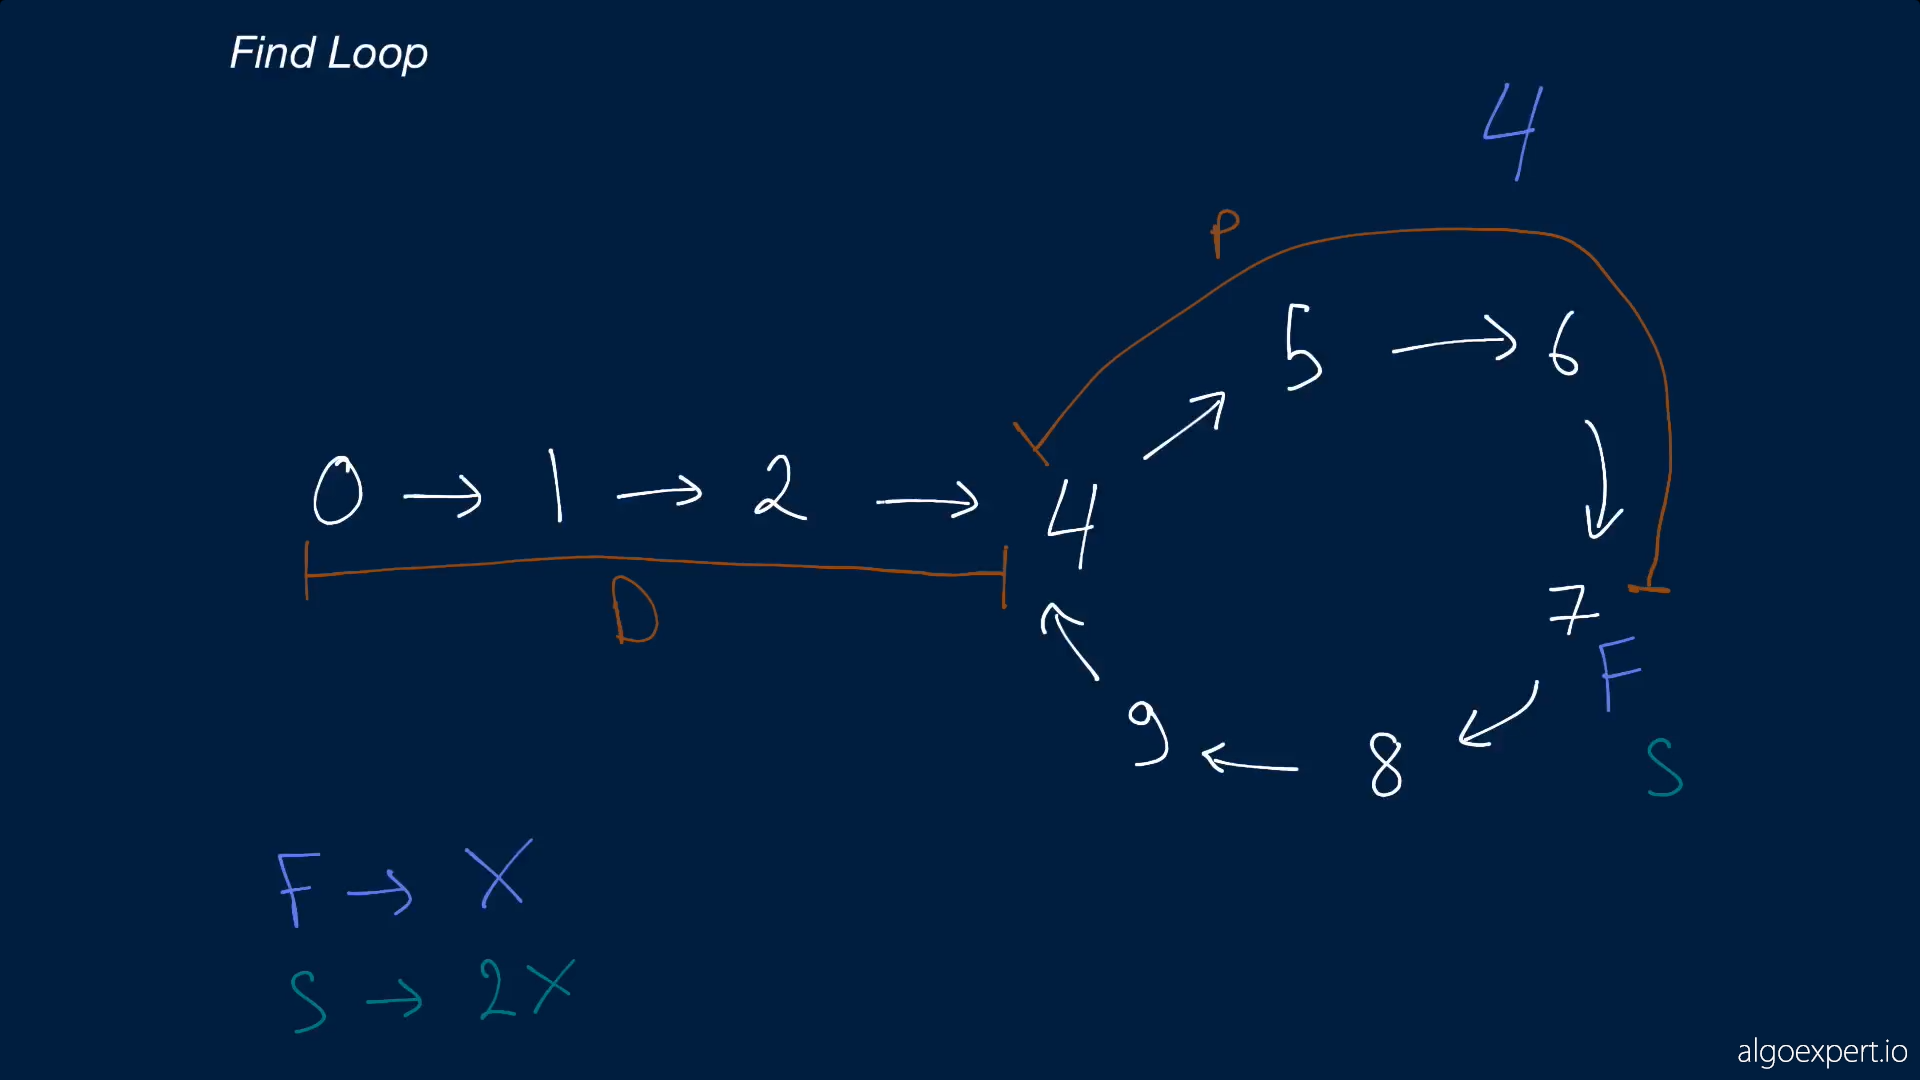 Find Loop
4
P
5 → 6
0 → 1 → 2 → 4
D
7
F
9 ← 8
S
F → X
S → 2X
algoexpert.io